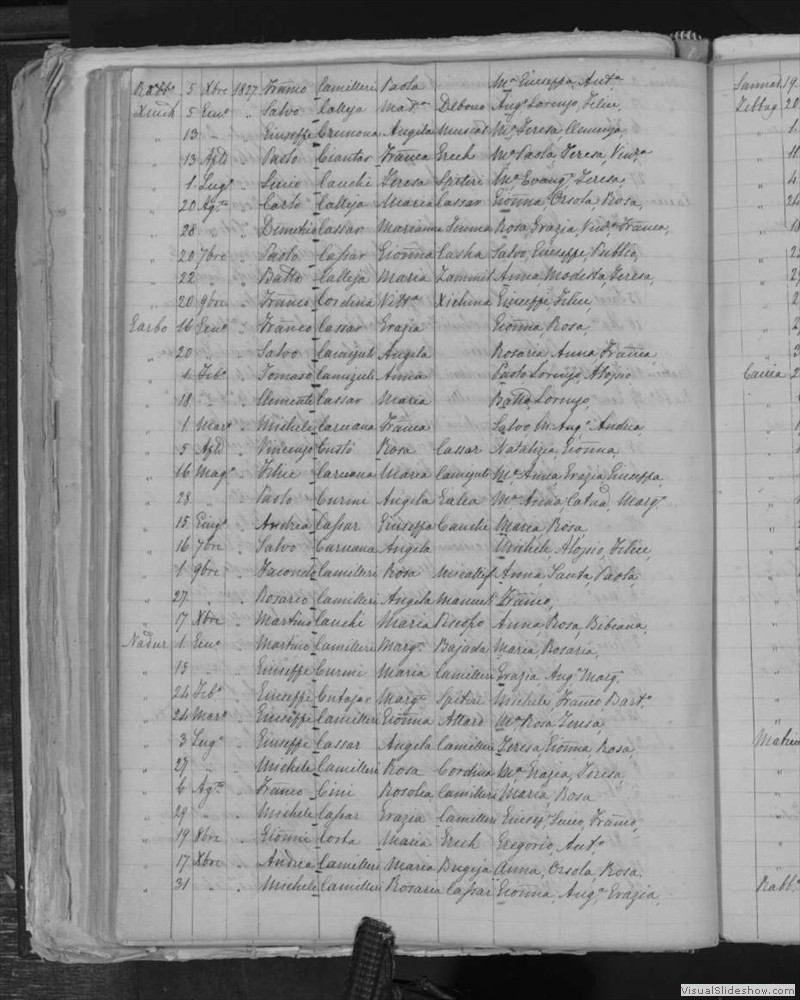 Rabbo 5 Xbre 1827 Franco Camilleri Paola Ma Giuseppa, Anta
Xeuch 5 Genо " Salvo Calleja Mada Debono Anga Lorenzo, Felice,
" 13 " " Giuseppe Cremona Angela Muscat Ma Teresa Clemenza,
" 13 Aple " Paolo Ciantar Franca Grech Ma Paola, Teresa, Vinza
" 1 Lugo " Cauchi Teresa Spiteri Ma Evanga Teresa,
" 20 Agto " Carlo Calleja Maria Cassar Gionna, Orsola, Rosa,
" 28 " " Demetrio Cassar Marianna Rosa, Grazia, Vinza Franca,
" 20 7bre " Paolo Cassar Gionna Salvo, Giuseppe, Publio,
" 22 " " Batta Calleja Maria Zammit Anna, Modesta, Teresa,
" 20 9bre " Franco Cordina Vitta Xichma Giuseppe, Felice,
Garbo 16 Geno " Franco Cassar Grazia Gionna, Rosa,
" 20 " " Salvo Camijuli Angela Rosaria Anna Franca,
" 4 Febo " Tomaso Camijuli Anna Paolo Lorenzo, Aloisio
" 18 " " Clemente Cassar Maria Batta, Lorenzo,
" 1 Maro " Michele Caruana Franca Salvo, M. Anga Andrea,
" 5 Aple " Vincenzo Custò Rosa Cassar Natalizia, Gionna,
" 16 Mago " Felice Caruana Maria Camijuli Ma Anna, Grazia, Giuseppa,
" 28 " " Paolo Curmi Angela Galea Ma Anna, Catna, Marga
" 15 Giugo " Andrea Cassar Giuseppa Cauchi Maria Rosa
" 16 7bre " Salvo Caruana Angela Michele Aloisio, Felice,
" 1 9bre " Facondo Camilleri Rosa Micallef Anna Santa, Paola,
" 27 " " Rosario Camilleri Angela Franco,
" 17 Xbre " Martino Cauchi Maria Piscopo Anna, Rosa, Bibiana,
Nadur 1 Geno " Martino Camilleri Marga Bajada Maria Rosaria,
" 15 " " Giuseppe Curmi Maria Camilleri Grazia Anga Marg.
" 24 Febo " Giuseppe Cutajar Marga Spiteri Michele Franco Barta
" 24 Maro " Giuseppe Camilleri Gionna Attard Ma Rosa Teresa,
" 3 Lugo " Giuseppe Cassar Angela Camilleri Teresa, Gionna, Rosa,
" 27 " " Michele Camilleri Rosa Cordina Ma Grazia, Teresa,
" 6 Agto " Franco Cini Rosolea Camilleri Maria, Rosa
" 29 " " Michele Cassar Grazia Camilleri Franco,
" 19 Xbre " Gionni Costa Maria Grech Gregorio, Anta
" 17 Xbre " Andrea Camilleri Maria Bugeja Anna, Orsola, Rosa.
" 31 " " Michele Camilleri Rosaria Cassar Gionna, Anga, Grazia,
Sannat 19
Zebbug 20
Caccia 2
Rabbo
VisualSlideshow.com